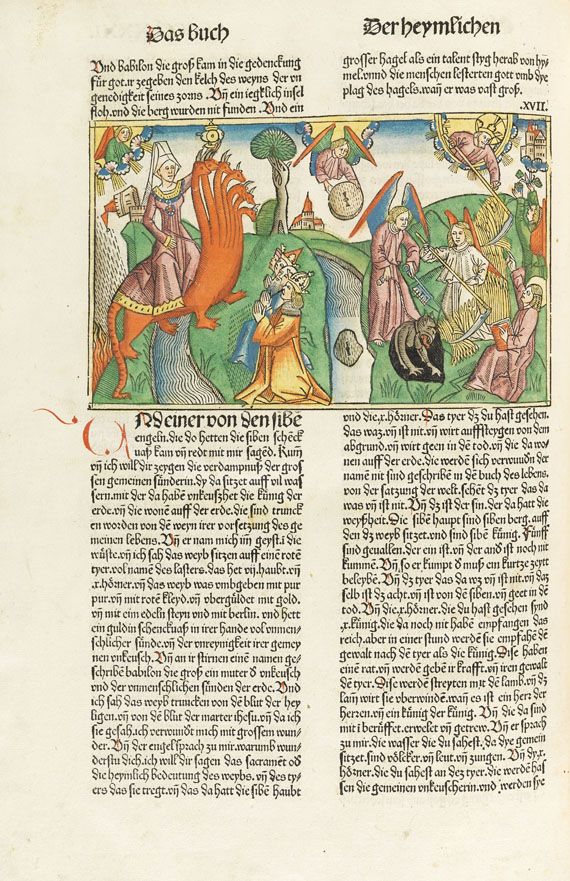 Das buch
Der heymlichen
Vnd babilon die groß kam in die gedenckung
für got. ir zegeben den kelch des weyns der vn
genedigkeit seines zorns. Vñ ein iegklich insel
floh. vnd die berg wurden nit funden. Vnd ein
grosser hagel als ein talent styg herab von hy-
mel. vnnd die menschen lesterten gott vmb dye
plag des hagels. wañ er was vast groß.
.XVII.
Vnd einer von den sibẽ
engeln. die do hetten die siben schenck
uaß kam vñ redt mit mir sagẽd. Kum̃
vñ ich will dir zeygen die verdampnuß der gros
sen gemeinen sünderin. dy da sitzet auff vil was
sern. mit der da habẽ vnkeußhet die künig der
erde. vñ die wonẽ auff der erde. die sind trunck
en worden von dẽ weyn irer vorsetzung des ge
meinen lebens. Vñ er nam mich im̃ geyst. i die
wüste. vñ ich sah das weyb sitzen auff einẽ rotẽ
tyer. vol namẽ des lasters. das het vij. haubt. vñ
.x. hörner. vñ das weyb was vmbgeben mit pur
pur. vñ mit rotẽ kleyd. vñ vbergüldet mit gold.
vñ mit ein edeln steyn vnd mit berlin. vnd hett
ein guldin schenckuaß in irer hande vol vnmen-
schlicher sünde. vñ der vnreynigkeit irer gemey
nen vnkeusch. Vñ an ir stirnen einẽ namen ge-
schribẽ babilon die groß ein muter đ vnkeusch
vnd der vnmenschlichen sünden der erde. Vnd
ich sah das weyb truncken von dẽ blut der hey
ligen. vñ von dẽ blut der marter ihesu. vñ da ich
sie gesah. ich verwundt mich mit grossem wun-
der. Vñ der engel sprach zu mir. warumb wun-
derstu dich. ich will dir sagen das sacramẽt oð
die heymlich bedeutung des weybs. vñ des ty-
ers das sie tregt. vñ das da hatt die sibẽ haubt
vnd die .x. hörner. Das tyer dz du hast gesehen.
das waz. vñ ist nit. vñ wirt auffsteygen von dem
abgrund. vñ wirt geen in den tod. vñ die da wo-
nen auff der erde. die werdẽ sich verwundn der
namẽ nit sind geschribẽ in dẽ buch des lebens.
von der satzung der welt. sehẽt dz tyer das da
was vñ ist nit. Vñ dz ist der sin. der da hatt die
weyßheit. Die sibẽ haupt sind siben berg. auff
den dz weyb sitzet. vnd sind sibẽ künig. Fünff
sind geuallen. der ein ist. vñ der and ist noch nit
kummen. Vñ so er kumpt đ muß ein kurtze zeytt
beleybẽ. Vñ dz tyer das da wz vñ ist nit. vñ daz
selb ist dz acht. vñ ist von dẽ siben. vñ geet in dẽ
tod. Vñ die .x. hörner. die du hast gesehen synd
.x. künig. die da noch nit habẽ empfangen das
reich. aber in einer stund werdẽ sie empfahẽ dẽ
gewalt nach dẽ tyer als die künig. Dise haben
einẽ rat. vñ werdẽ gebẽ ir krafft. vñ iren gewalt
dẽ tyer. Dise werdẽ streyten mit dẽ lamb. vñ dz
lam̃ wirt sie vberwindẽ. wañ es ist ein herz der
herzen. vñ ein künig der künig. Vñ die da sind
mit i berüffet. erwelet vñ getrew. Vñ er sprach
zu mir. die wasser die du sahest. da dye gemein
sitzet. sind völcker. vñ leut. vñ zungen. Vñ dy .x.
hörner. die du sahest an dez tyer. die werdẽ has
sen die gemeinen vnkeuscherin. vnd werden sye